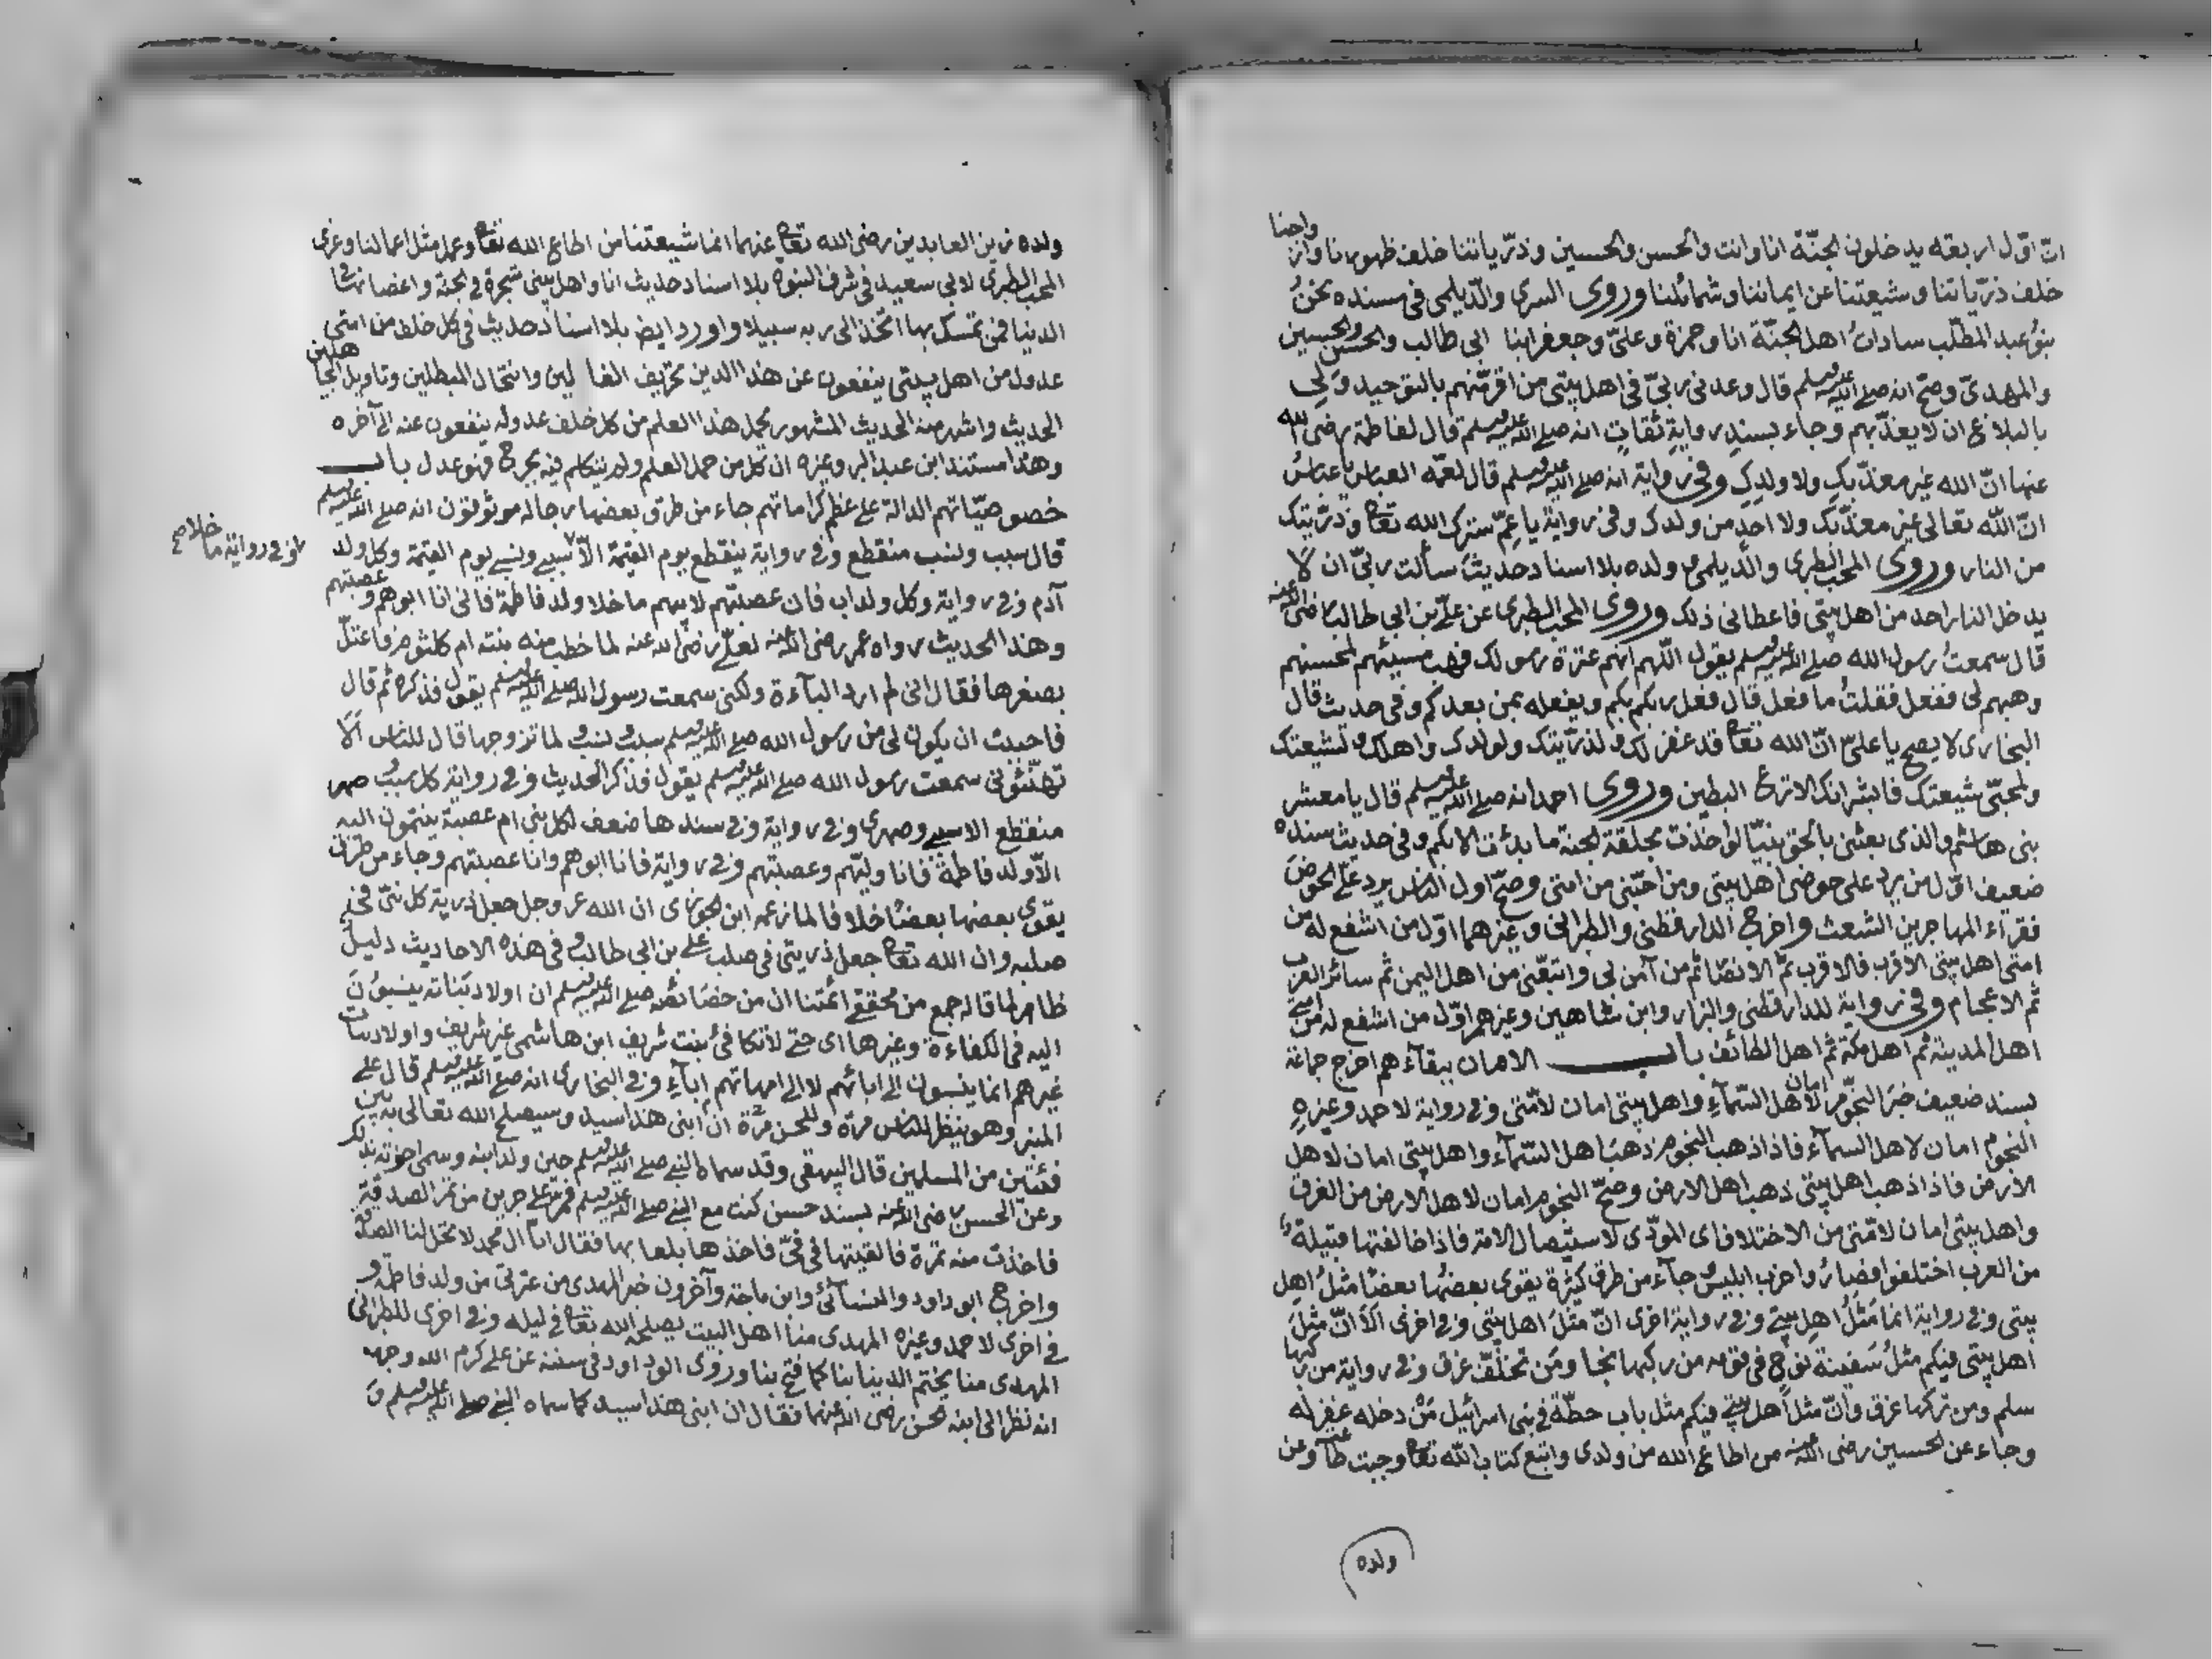 ان اوّل اربعة يدخلون الجنّة انا وانت والحسن والحسين وذرّياتنا خلف ظهورنا وازواجنا
خلف ذرّياتنا وشيعتنا عن ايماننا وشمائلنا وروى السري والدّيلمى فى مسنده نحنُ
بنو عبد المطّلب ساداتُ اهل الجنّة انا وحمزة وعلىّ وجعفر ابنا ابى طالب والحسن والحسين
والمهدىّ وصحّ انه صلى الله عليه وسلم قال وعدنى ربىّ فى اهل بيتى من اقرّ منهم بالتوحيد ولى
بالبلاغ ان لا يعذّبهم وجاء بسندٍ رواية ثقات انه صلى الله عليه وسلم قال لفاطمة رضى الله
عنها انّ الله غير معذّبكِ ولا ولدكِ وفى رواية انه صلى الله عليه وسلم قال لعمّه العباس يا عباسُ
انّ الله تعالى غير معذّبك ولا احدٍ من ولدك وفى رواية يا عمّ سترك الله تعا وذرّيتك
من النار وروى المحب الطبرى والدّيلمى وولده بلا اسناد حديثَ سألت ربىّ ان لا
يدخل النار احد من اهل بيتى فاعطانى ذلك وروى المحب الطبرى عن علىّ بن ابى طالب رضى الله عنه
قال سمعتُ رسول الله صلى الله عليه وسلم يقول اللّهم انّهم عترة رسولك فهب مسيئهم لمحسنهم
وهبهم لى ففعل فقلتُ ما فعل قال فعل ربكم بكم ويفعله بمن بعدكم وفى حديث قال
البخارى لا يصح يا علىّ انّ الله تعا قد غفر لك ولذرّيتك ولولدك واهلك ولشيعتك
ولمحبّى شيعتك فابشر انك الانزع البطين وروى احمد انه صلى الله عليه وسلم قال يا معشر
بنى هاشم والذى بعثنى بالحق نبيّا لو اخذت بحلقة الجنة ما بدئت الا بكم وفى حديث سنده
ضعيف اوّل من يرد على حوضى اهل بيتى ومن احبّنى من امتى وصحّ اول الناس يرد علىّ الحوضَ
فقراء المهاجرين الشعث واخرج الدارقطنى والطبرانى وغيرهما اوّل من اشفع له من
امتى اهل بيتى الاقرب فالاقرب ثمّ الانصار ثم من آمن بى واتبعّنى من اهل اليمن ثم سائر العرب
ثم الاعجام وفى رواية للدارقطنى والبزار وابن شاهين وغيرهم اوّل من اشفع له من امتى
اهل المدينة ثم اهل مكّة ثم اهل الطائف باب الامان ببقاءهم اخرج جماعة
بسند ضعيف خبَر النجومُ امان لاهل السّمآءِ واهل بيتى امان لامّتى وفى رواية لاحمد وغيرهِ
النجوم امان لاهل السمآء فاذا ذهب النجوم ذهبَ اهل السّمآء واهل بيتى امان لاهل
الارض فاذا ذهب اهل بيتى ذهب اهل الارض وصحّ النجوم امان لاهل الارض من الغرق
واهل بيتى امان لامّتى من الاختلاف اى المؤدّى لاستيصال الامة فاذا خالفتها قبيلةٌ
من العرب اختلفوا فصارُ واحزب ابليس جآء من طرق كثيرة يقوى بعضُها بعضًا مثلُ اهلِ
بيتى وفى رواية انما مثلُ اهلِ بيتى وفى رواية اخرى انّ مثلَ اهل بيتى وفى اخرى اَلا انّ مثلَ
اهل بيتى فيكم مثلُ سَفينة نوح فى قومه من ركبها نجا ومَن تخلّف غرق وفى رواية من ركبها
سلم ومن تركها غرق وانّ مثل اهل بيتى فيكم مثل باب حطّة فى بنى اسرائيل مَن دخله غفر له
وجاء عن الحسين رضى الله عنه من اطاع الله من ولدى واتبع كتاب الله تعا وجبت طاعته وعن
ولده
ولده زين العابدين رضى الله تعا عنهما انما شيعتنا من اطاع الله تعا وعمل مثل اعمالنا وعزى
المحب الطبرى لابى سعيد فى شرف النبوة بلا اسناد حديث انا واهل بيتى شجرة فى الجنة واغصانها فى
الدنيا فمن تمسك بها اتخذ الى ربه سبيلا واورد ايضا بلا اسناد حديث فى كل خلف من امتى
عدول من اهل بيتى ينفون عن هذا الدين تحريف الغالين وانتحال المبطلين وتاويل الجاهلين
الحديث واشهر منه الحديث المشهور يحمل هذا العلم من كل خلف عدوله ينفعون عنه الى آخره
وهذا مستند ابن عبد البر وغيره ان كل من حمل العلم ولم يتكلم فيه بجرح فهو عدل باب
خصوصيّاتهم الدالة على عظم كراماتهم جاء من طرق بعضها رجاله موثوقون انه صلى الله عليه وسلم
قال سبب ونسب منقطع وفى رواية ينقطع يوم القيمة الّا سببى ونسبى يوم القيمة وكل ولد
وفى رواية ما خلا صح
آدم وفى رواية وكل ولد اب فان عصبتهم لابيهم ما خلا ولد فاطمة فانى انا ابوهم وعصبتهم
وهذا الحديث رواه عمر رضى الله عنه لعلىّ رضى الله عنه لما خطب منه بنته ام كلثوم فاعتلّ
بصغرها فقال انى لم ارد البآءة ولكنى سمعت رسول الله صلى الله عليه وسلم يقول فذكره ثم قال
فاحببت ان يكون لى من رسول الله صلى الله عليه وسلم سبب ونسب ولما تزوجها قال للناس اَلا
تهنّئونى سمعت رسول الله صلى الله عليه وسلم يقول فذكر الحديث وفى رواية كل سبب صهر
منقطع الا سببى وصهرى وفى رواية وفى سندها ضعف لكل بنى ام عصبة ينتمون اليه
الّا ولد فاطمة فانا وليّهم وعصبتهم وفى رواية فانا ابوهم وانا عصبتهم وجاء من طرق
يقوى بعضها بعضًا خلافا لما زعمه ابن الجوزى ان الله عز وجل جعل ذرية كل نبىّ فى
صلبه وان الله تعا جعل ذريتى فى صلب على بن ابى طالب وفى هذه الاحاديث دليل
ظاهر لما قاله جمع من محققى ائمتنا ان من خصائصه صلى الله عليه وسلم ان اولاد بَناته ينسبُونَ
اليه فى الكفاءة وغيرها اى حتى لا تكافئ بنت شريف ابن هاشمى غير شريف واولاد بنات
غيرهم انما ينسبون الى ابائهم لا الى امهاتهم اِبآءِ وفى البخارى انه صلى الله عليه وسلم قال على
المنبر وهو ينظر للناس مرّة وللحسن مرّة ان ابنى هذا سيد وسيصلح الله تعالى به بين
فئتين من المسلمين قال البيهقى وقد سماه النبى صلى الله عليه وسلم حين ولد ابنه وسمى اخوته بذلك
وعن الحسن رضى الله عنه بسند حسن كنت مع النبى صلى الله عليه وسلم فمرّ على جرين من تمر الصدقة
فاخذت منه تمرة فالقيتها فى فىّ فاخذها بلعابها فقال انا آل محمد لا تحل لنا الصدقة
واخرج ابو داود والنسآئى وابن ماجة وآخرون خبر المهدى من عترتى من ولد فاطمة و
فى اخرى لاحمد وغيره المهدى منا اهل البيت يصلحه الله تعا فى ليله وفى اخرى للطبرانى
المهدى منا يختم الدينا بنا كما فتح بنا وروى ابو داود فى سننه عن على كرم الله وجهه
انه نظر الى ابنه حسن رضى الله عنهما فقال ان ابنى هذا سيد كما سماه النبى صلى الله عليه وسلم وَ